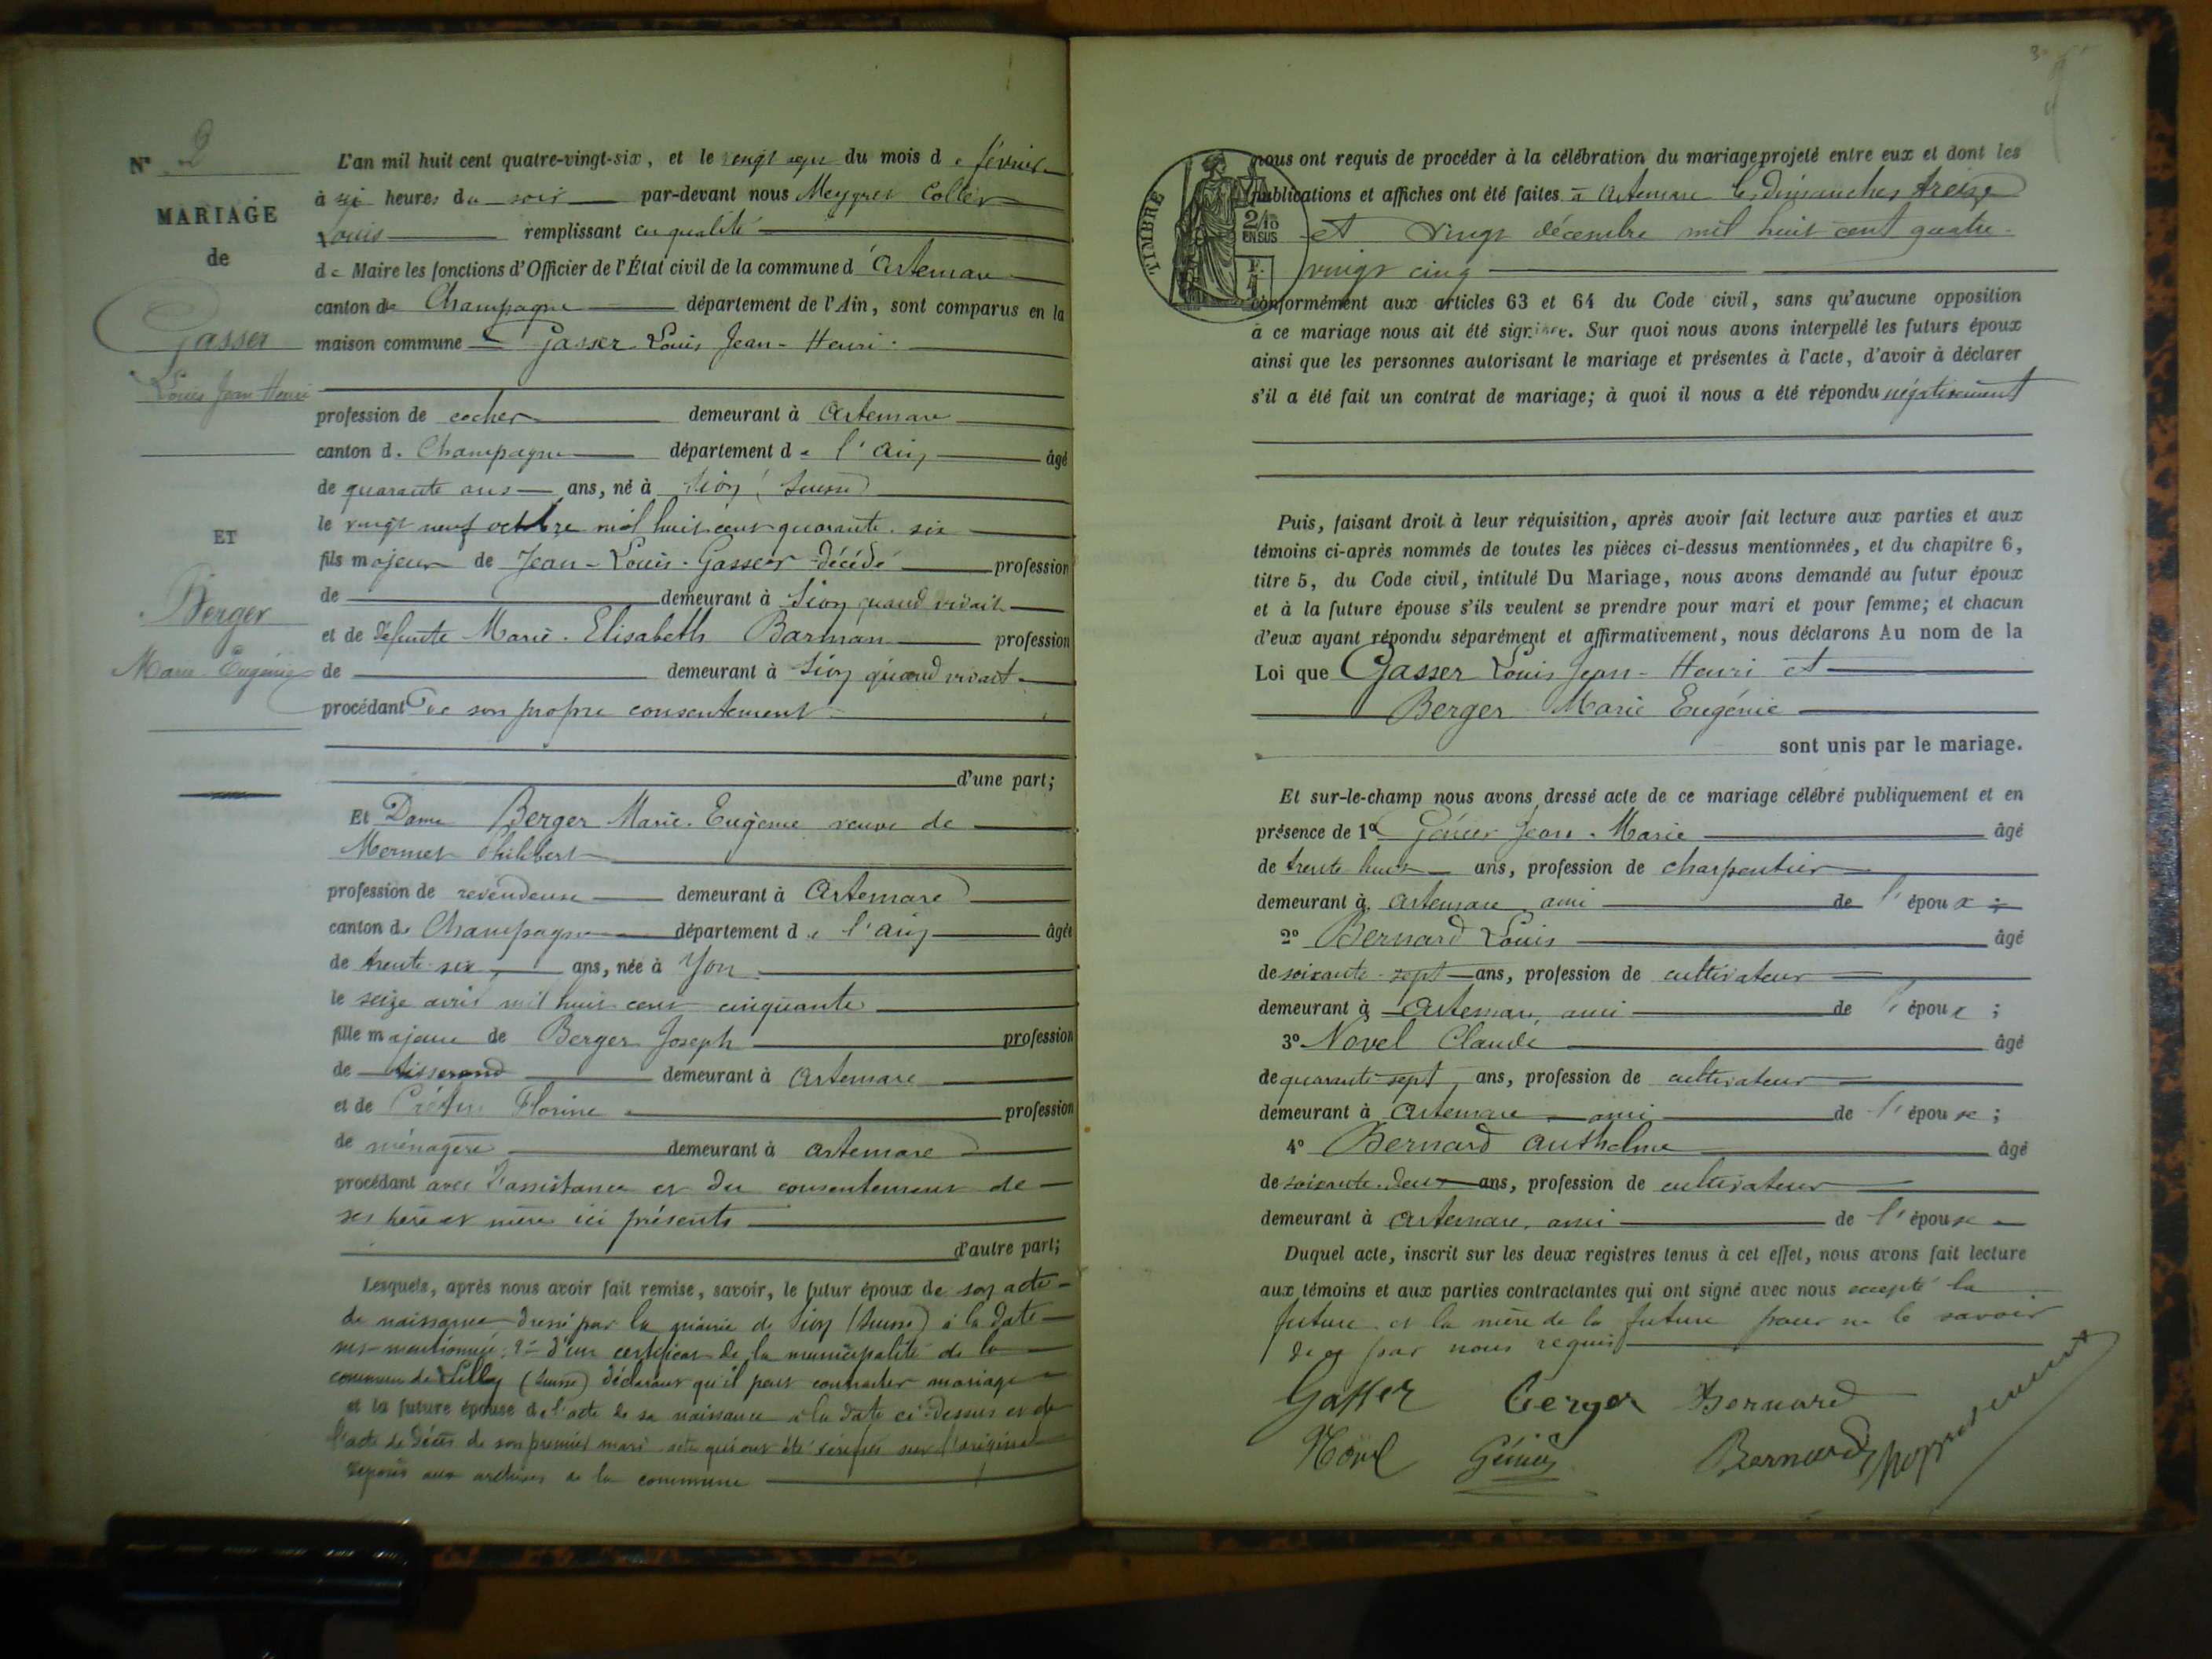 N° 2
MARIAGE
de
Gasser
Louis Jean Henri
ET
Berger
Marie Eugénie
L'an mil huit cent quatre-vingt-six, et le vingt sept du mois de février
à six heures du soir par-devant nous Meyyret
Louis remplissant en qualité
de Maire les fonctions d'Officier de l'État civil de la commune d'Artemare
canton de Champagne département de l'Ain, sont comparus en la
maison commune Gasser Louis Jean-Henri
profession de cocher demeurant à Artemare
canton de Champagne département de l'Ain âgé
de quarante ans ans, né à Sion (Suisse)
le vingt neuf octobre mil huit cent quarante-six
fils majeur de Jean-Louis Gasser décédé profession
de demeurant à Sion quand vivait
et de défunte Marie-Elisabeth Barman profession
de demeurant à Sion quand vivait
procédant de son propre consentement
d'une part;
Et Dame Berger Marie-Eugénie veuve de
Mermet Philibert
profession de revendeuse demeurant à Artemare
canton de Champagne département de l'Ain âgée
de trente-six ans, née à Yon
le seize avril mil huit cent cinquante
fille majeure de Berger Joseph profession
de tisserand demeurant à Artemare
et de Florine profession
de ménagère demeurant à Artemare
procédant avec l'assistance et du consentement de
ses père et mère ici présents
d'autre part;
Lesquels, après nous avoir fait remise, savoir, le futur époux de son acte
de naissance dressé par la mairie de Sion (Suisse) à la date
sus-mentionnée; 2° d'un certificat de la municipalité de la
commune de (Suisse) déclarant qu'il peut contracter mariage
et la future épouse de l'acte de sa naissance à la date ci-dessus et de
l'acte de décès de son premier mari acte qui ont été vérifiés sur l'original
déposés aux archives de la commune
TIMBRE
2/10
EN SUS
nous ont requis de procéder à la célébration du mariage projeté entre eux et dont les
publications et affiches ont été faites à Artemare les dimanches treize
et vingt décembre mil huit cent quatre-
vingt cinq
conformément aux articles 63 et 64 du Code civil, sans qu'aucune opposition
à ce mariage nous ait été signifiée. Sur quoi nous avons interpellé les futurs époux
ainsi que les personnes autorisant le mariage et présentes à l'acte, d'avoir à déclarer
s'il a été fait un contrat de mariage; à quoi il nous a été répondu négativement
Puis, faisant droit à leur réquisition, après avoir fait lecture aux parties et aux
témoins ci-après nommés de toutes les pièces ci-dessus mentionnées, et du chapitre 6,
titre 5, du Code civil, intitulé Du Mariage, nous avons demandé au futur époux
et à la future épouse s'ils veulent se prendre pour mari et pour femme; et chacun
d'eux ayant répondu séparément et affirmativement, nous déclarons Au nom de la
Loi que Gasser Louis Jean-Henri et
Berger Marie Eugénie
sont unis par le mariage.
Et sur-le-champ nous avons dressé acte de ce mariage célébré publiquement et en
présence de 1° Jean-Marie âgé
de trente huit ans, profession de charpentier
demeurant à Artemare ami de l'époux;
2° Bernard Louis âgé
de soixante-sept ans, profession de cultivateur
demeurant à Artemare, ami de l'époux;
3° Novel Claude âgé
de quarante-sept ans, profession de cultivateur
demeurant à Artemare ami de l'épouse;
4° Bernard Anthelme âgé
de soixante-deux ans, profession de cultivateur
demeurant à Artemare, ami de l'épouse
Duquel acte, inscrit sur les deux registres tenus à cet effet, nous avons fait lecture
aux témoins et aux parties contractantes qui ont signé avec nous excepté la
future et la mère de la future pour ne le savoir
de ce par nous requis
Gasser Berger Bernard
Novel Bernard